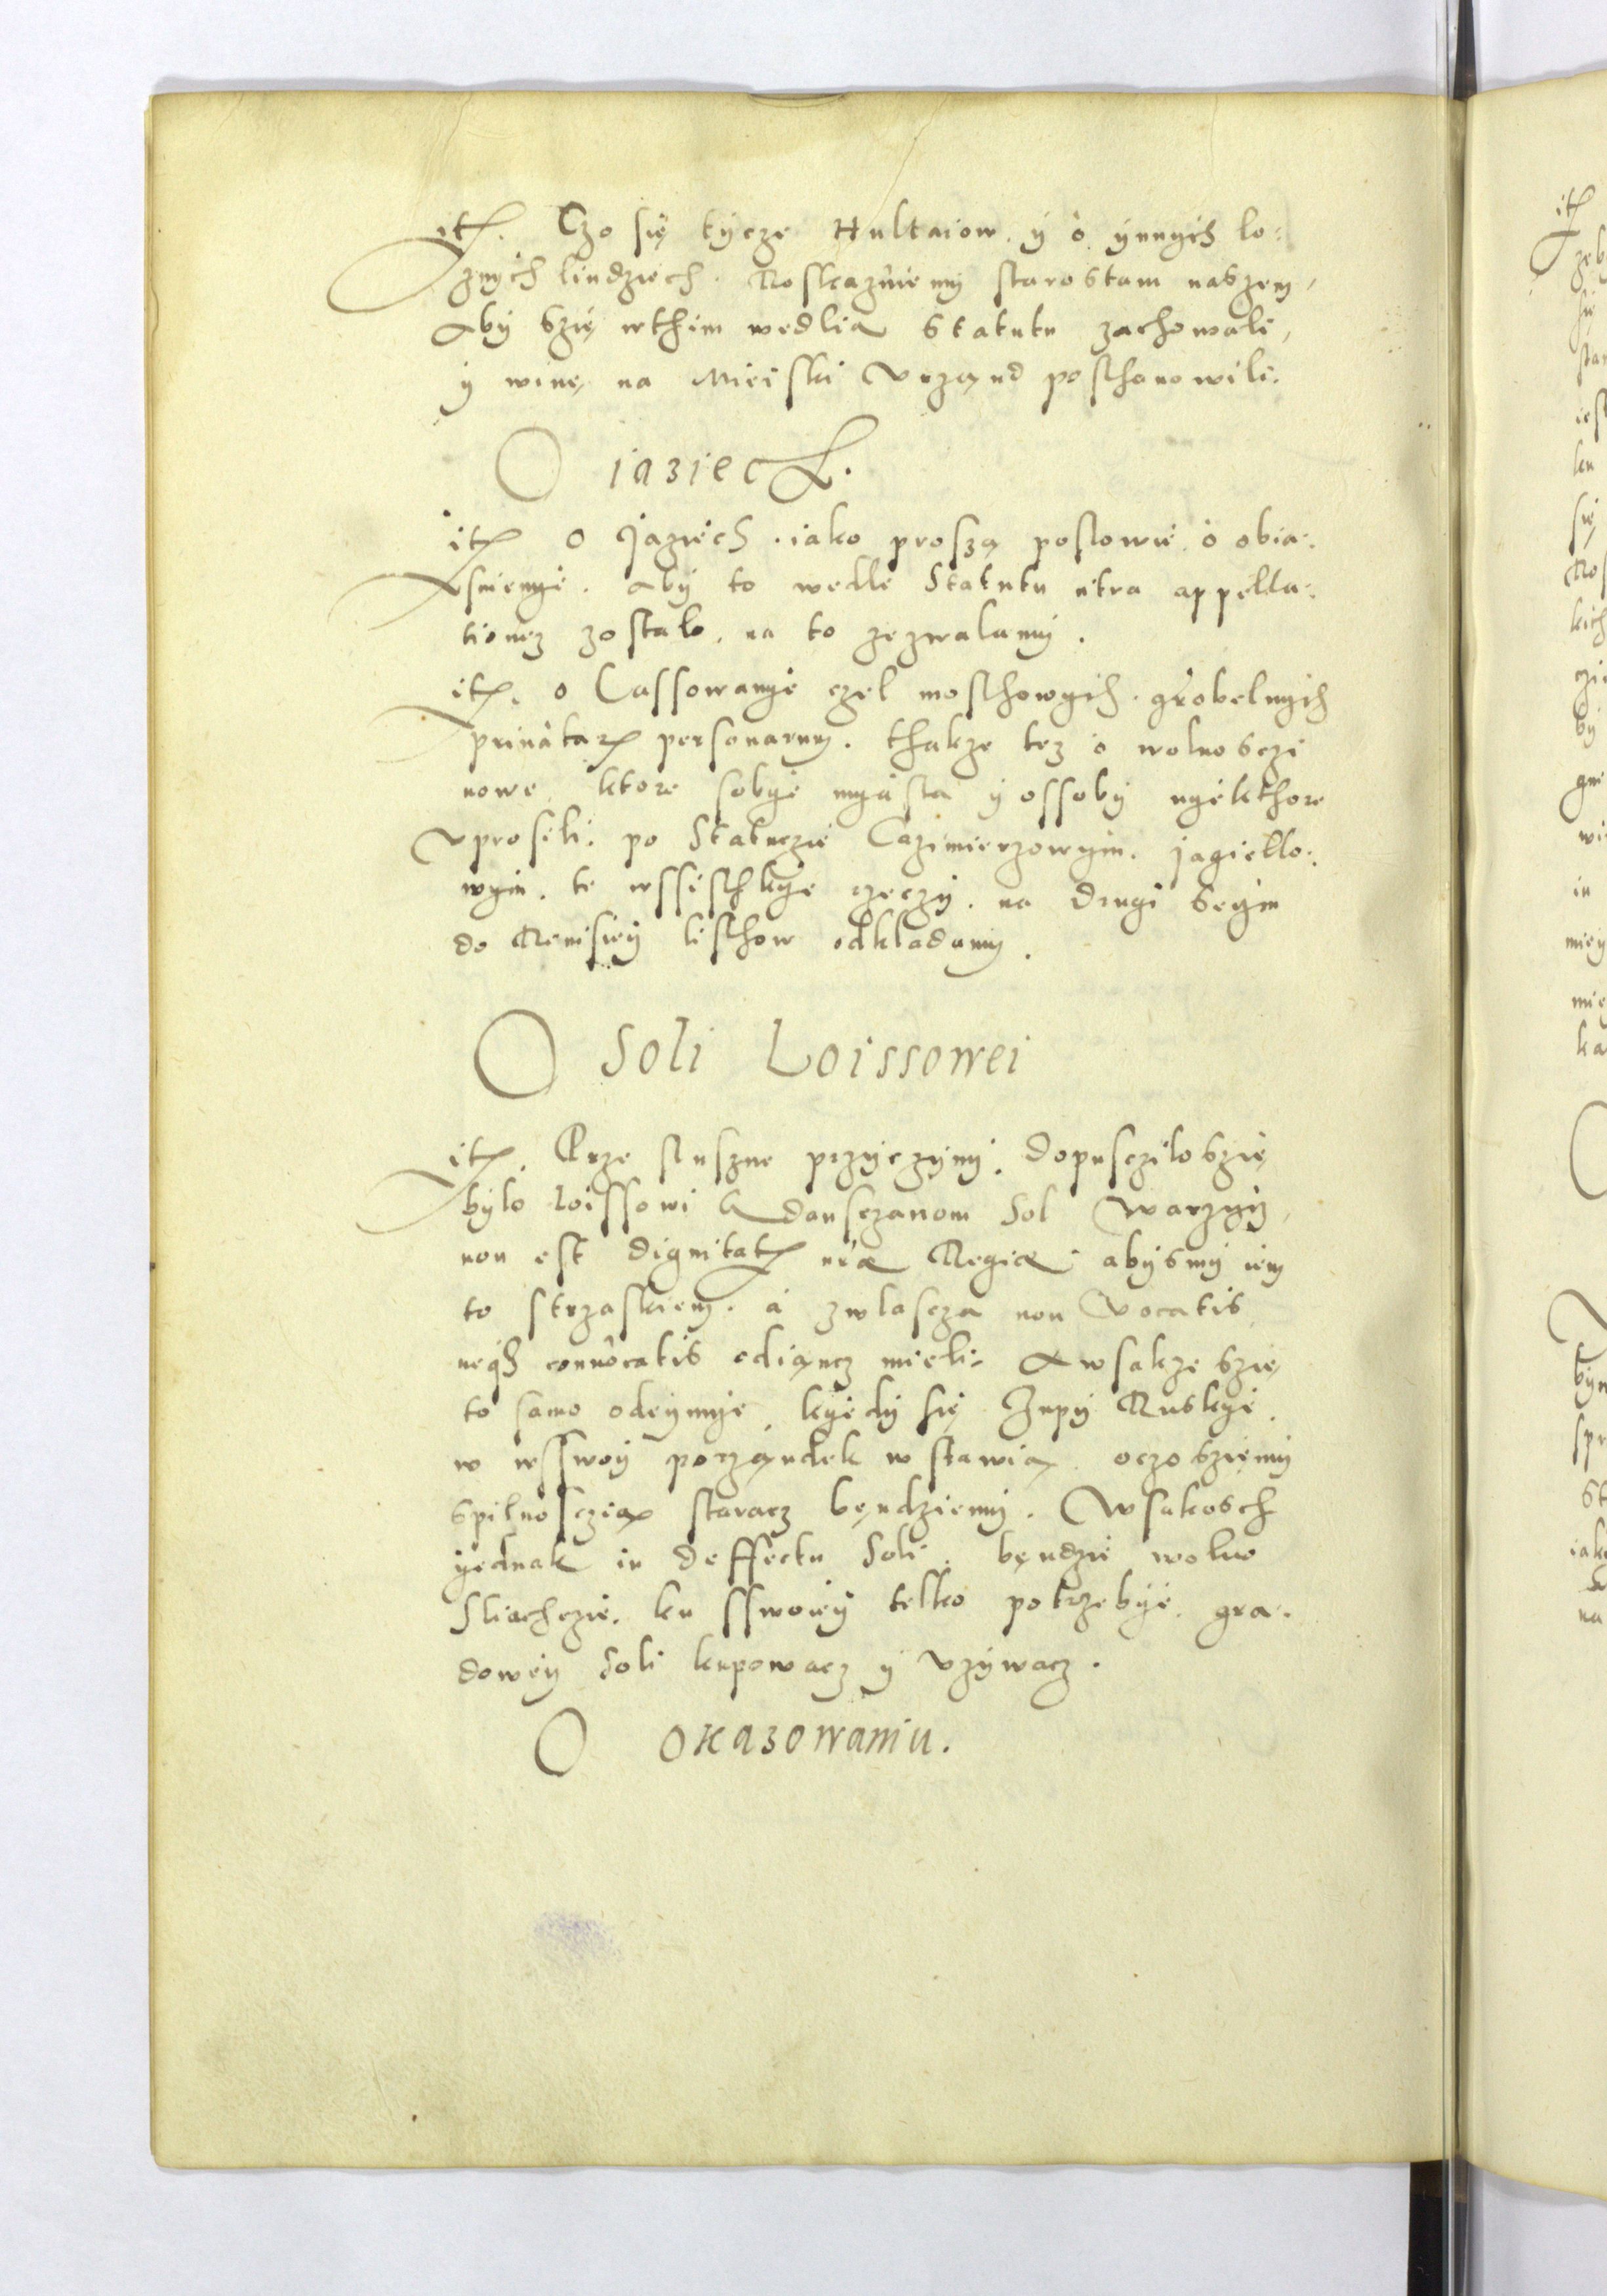 Item. Czo się tycze Hultaiow. ÿ o ÿnnÿch lo-
znÿch liudziech. Roskazuiemÿ starostam naszem,
Abÿ szię wthim wedlia Statutu zachowali,
ÿ winę na Mieiski Vrzand posthanowili.
O iaziech.
Item o Jaziech. iako prosza poslowie o obia-
snienÿe. Abÿ to wedle Statutu citra appella-
tionem zostalo. na to zezwalamÿ.
Item. o Cassowanÿe czel mosthowÿch. grobelnÿch
priuatarum personarum. thakze tez o wolnosczi
nowe ktore sobÿe mÿasta ÿ ossobÿ nÿekthore
Vprosili. po Statuczie Cazimierzowÿm. Jagiello-
wÿm. te wssistkÿe rzeczÿ. na drugi Seÿm
do Reuisieÿ listhow odkladamÿ.
O Soli Loissowei
Item. Prze sluszne przÿczÿnÿ. dopusczilo szię
bÿlo Loissowi Gdansczanom Sol Warzÿcz,
non est dignitatis nrae Regiae abÿsmÿ iem
to strzaskiem. a zwlascza non Vocatis
neque conuocatis odiancz mieli. Awsakze szię
to samo odeÿmÿe, kÿedÿ się Zupÿ Ruskÿe
w wsswoÿ porzandek wstawia. oczo sziemÿ
spilnosczia staracz bendziemÿ. Wsakosch
ÿednak in deffectu Soli. bendzie wolno
Sliachczie. ku sswoieÿ telko potrzebÿe. gra-
doweÿ Soli kupowacz ÿ Vzÿwacz.
O okazowaniu.